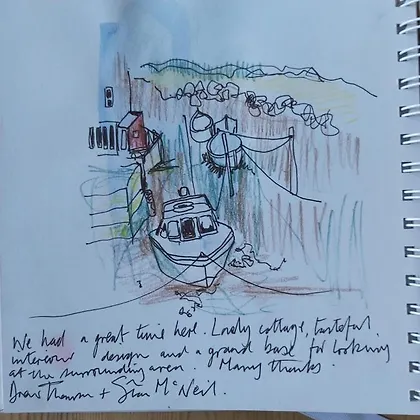 We had a great time here. Lovely cottage, tasteful
interior design and a grand base for looking
at the surrounding area. Many thanks.
Thomson + Siân McNeil.